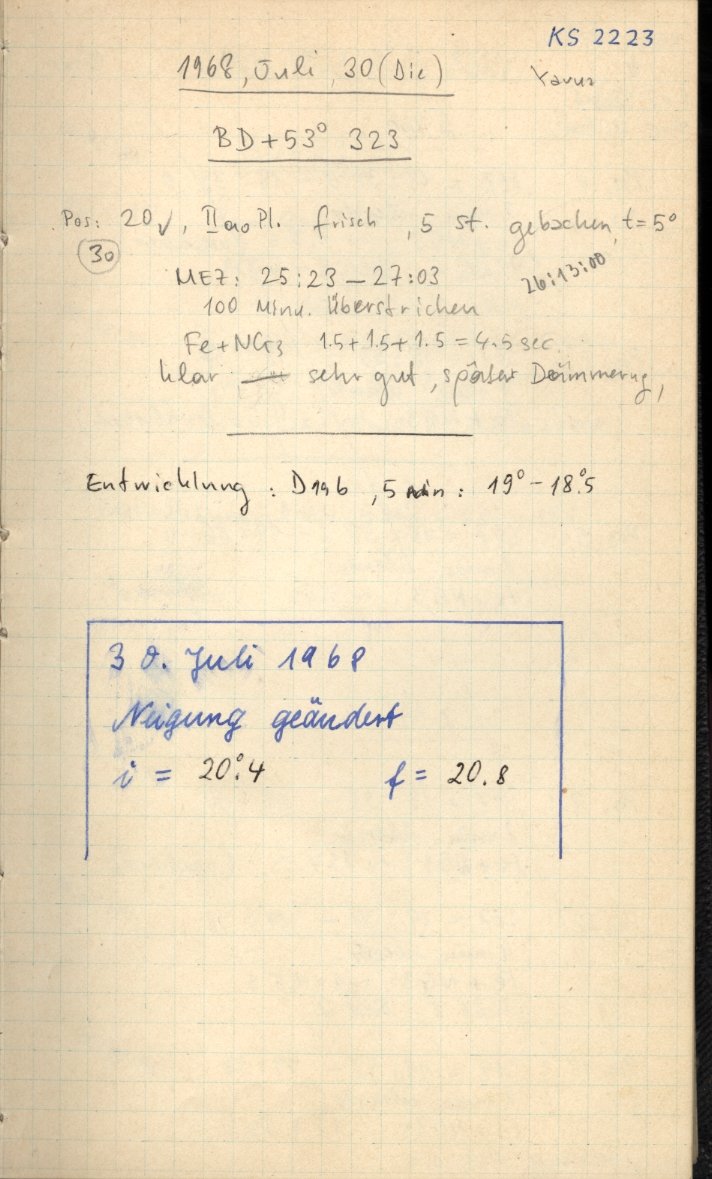 KS 2223
1968, Juli, 30 (Die)
Yavuz
BD+53° 323
Pos: 20√, IIa0 Pl. frisch, 5 st. gebacken, t=5°
30
MEZ: 25:23 — 27:03
26:13:00
100 Minu. Überstrichen
Fe+NG3 1.5+1.5+1.5 = 4.5 sec.
klar — sehr gut, später Dämmerug,
Entwicklung: D19b, 5 min: 19° - 18.°5
30. Juli 1968
Neigung geändert
i = 20.°4 f = 20.8